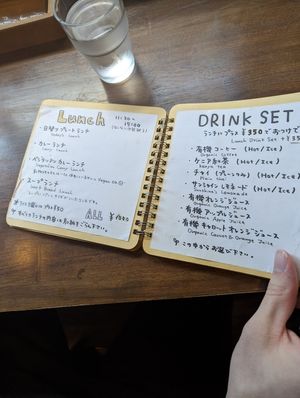 Lunch
11:30~
・日替りプレートランチ
Today's Lunch
・カレーランチ
Curry Lunch
・ベジタリアンカレーランチ
Vegetarian Curry Lunch
・スープランチ
Soup & Bread Lunch
ALL ¥1500
DRINK SET
ランチにプラス¥350で
Lunch Drink Set +¥35
・有機コーヒー (Hot/Ice)
Organic Coffee
・ケニア紅茶 (Hot/Ice)
Kenya Tea
・チャイ(プレーンのみ) (Hot/Ice)
Plain Chai
・サンシャインレモネード (Hot/Ice)
Sunshine's Lemonade
・有機オレンジジュース
Organic Orange Juice
・有機アップルジュース
Organic Apple Juice
・有機キャロットオレンジジュース
Organic Carrot & Orange Juice
この中からお選び下さい。